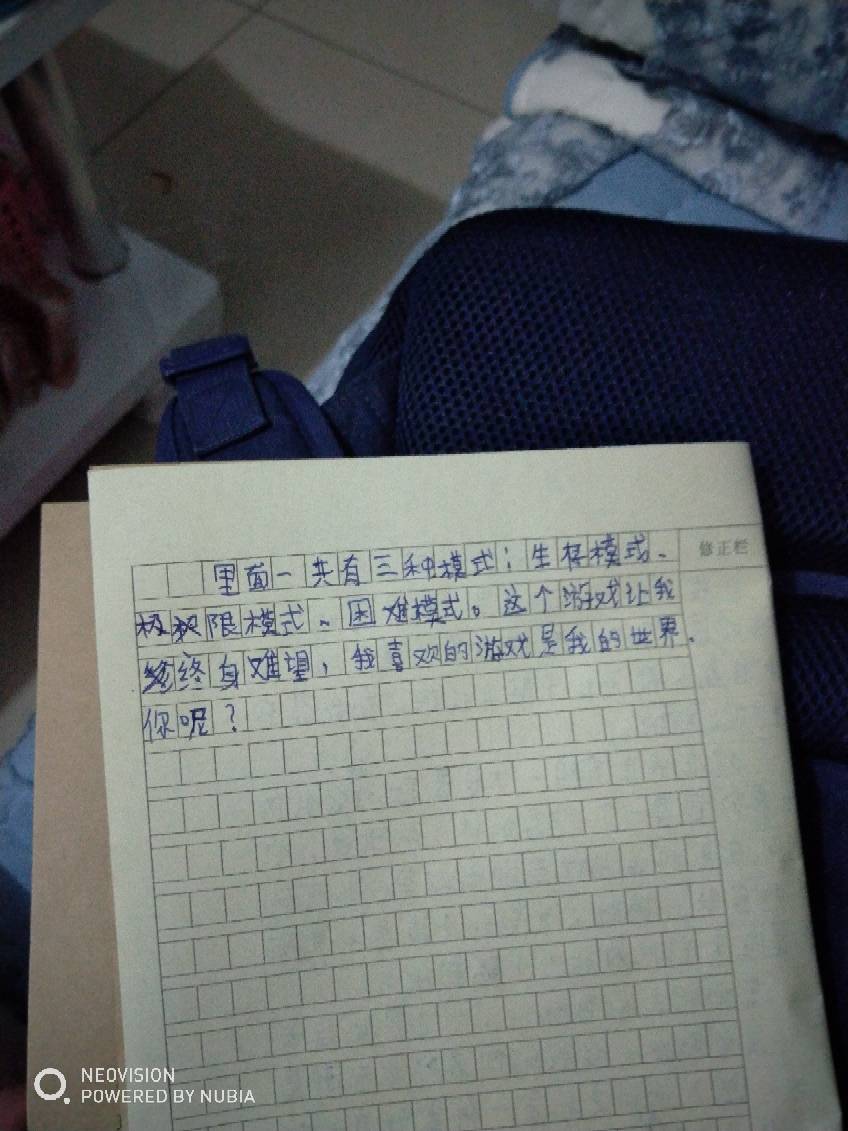 里面一共有三种模式：生存模式、
修正栏
极限模式、困难模式。这个游戏让我
终身难望，我喜欢的游戏是我的世界。
你呢？
NEOVISION
POWERED BY NUBIA